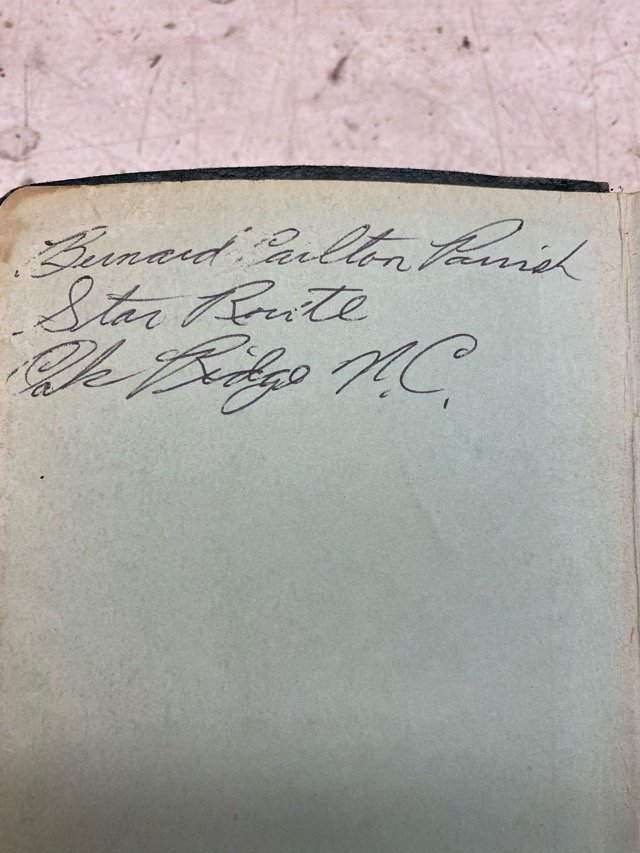 Bernard Carlton Parrish
Star Route
Oak Ridge N.C.